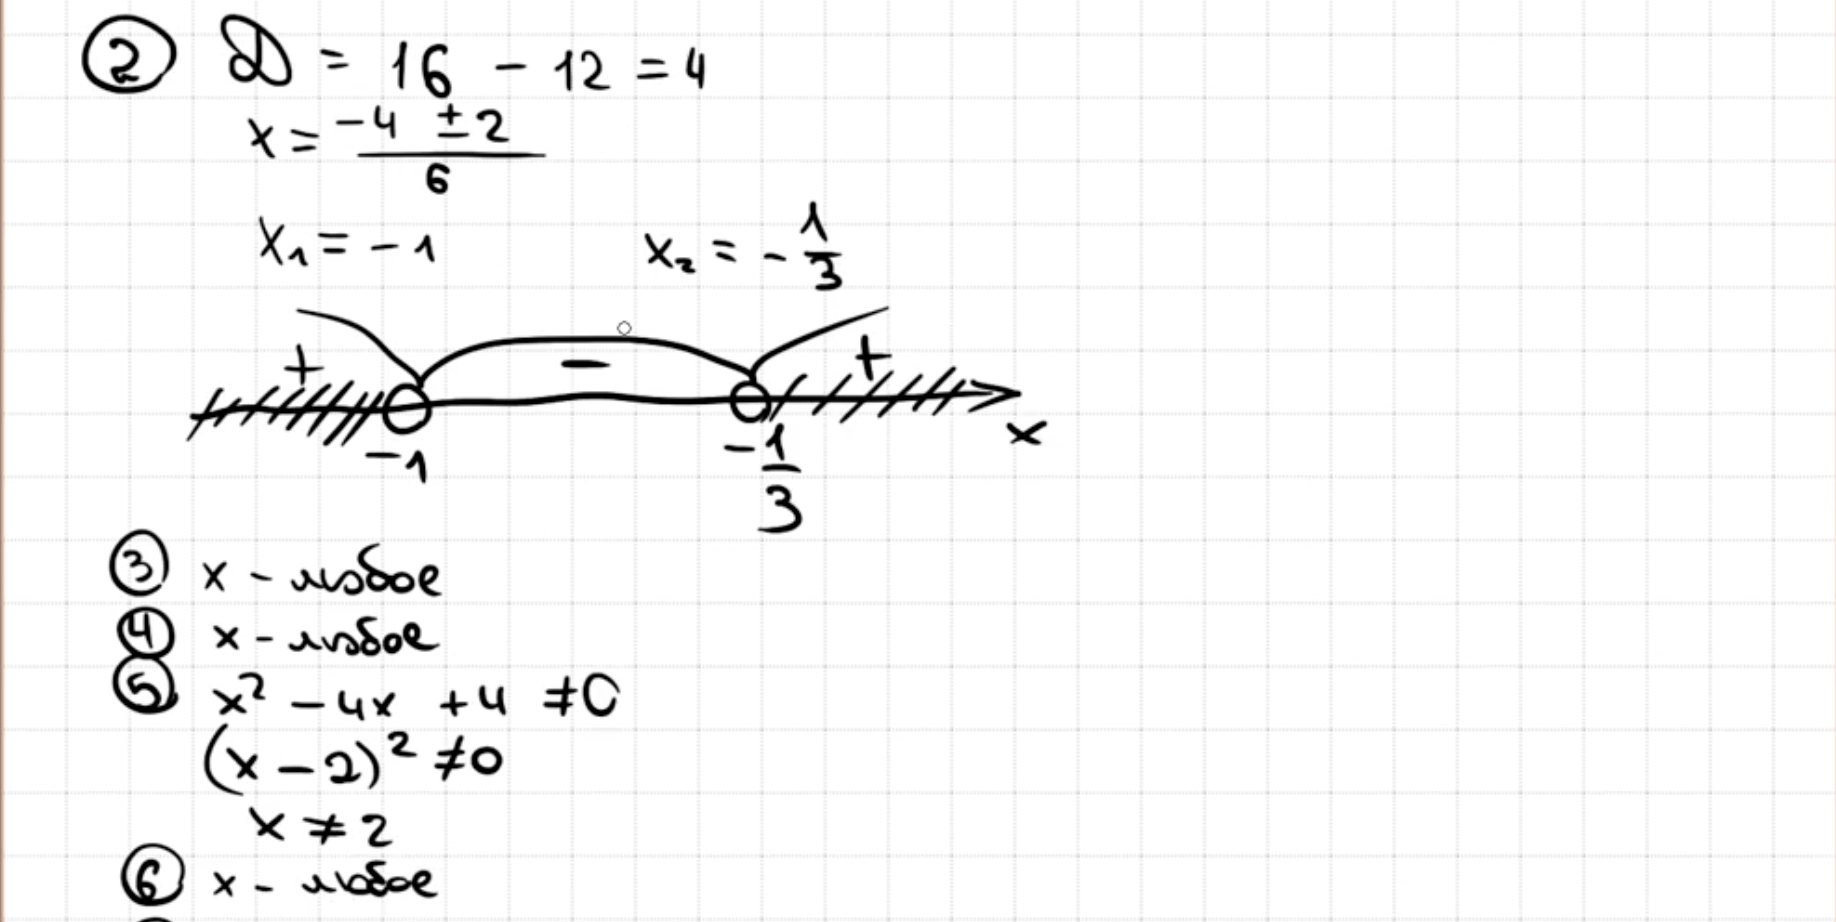 ② D = 16 - 12 = 4
x = (-4 ± 2)/6
x₁ = -1 x₂ = -1/3
+ - +
-1 -1/3 x
③ x - любое
④ x - любое
⑤ x² - 4x + 4 ≠ 0
(x - 2)² ≠ 0
x ≠ 2
⑥ x - любое